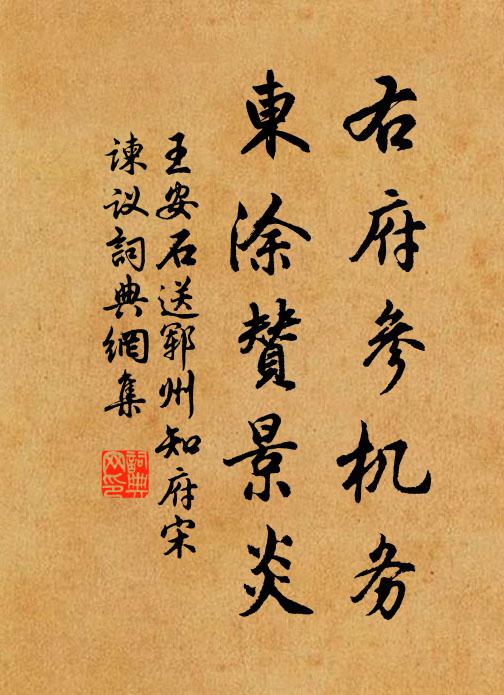 右府参机务
東涂賛景炎
王安石送郓州知府宋
谏议詞典網集
詞典
网印